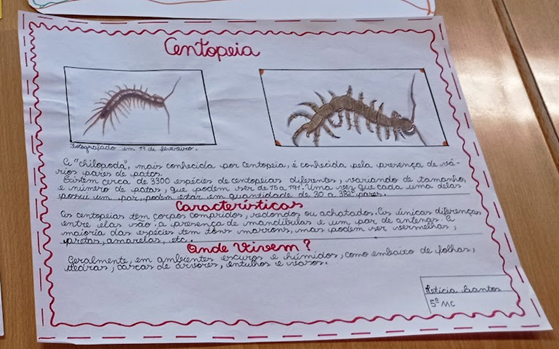 Centopeia
Fotografado em 19 de fevereiro.
Os "chilopoda", mais conhecida por Centopeia, é conhecida pela presença de vá-
rios pares de patas.
Existem cerca de 3300 espécies de centopeias diferentes, variando de tamanho
e número de patas, que podem ser de 15 a 191. Uma vez que cada uma delas
possui um par, podem estar em quantidade de 30 a 382 pares.
Características
As centopeias têm corpos compridos, redondos ou achatados. As únicas diferenças
entre elas são: a presença de mandíbulas e um par de antenas. A
maioria das espécies tem tons marrons, mas podem ser vermelhas,
pretas, amarelas, etc.
Onde Vivem?
Geralmente, em ambientes escuros e húmidos, como embaixo de folhas,
pedras, cascas de árvores, entulhos e vasos.
Letícia Santos
5º MC